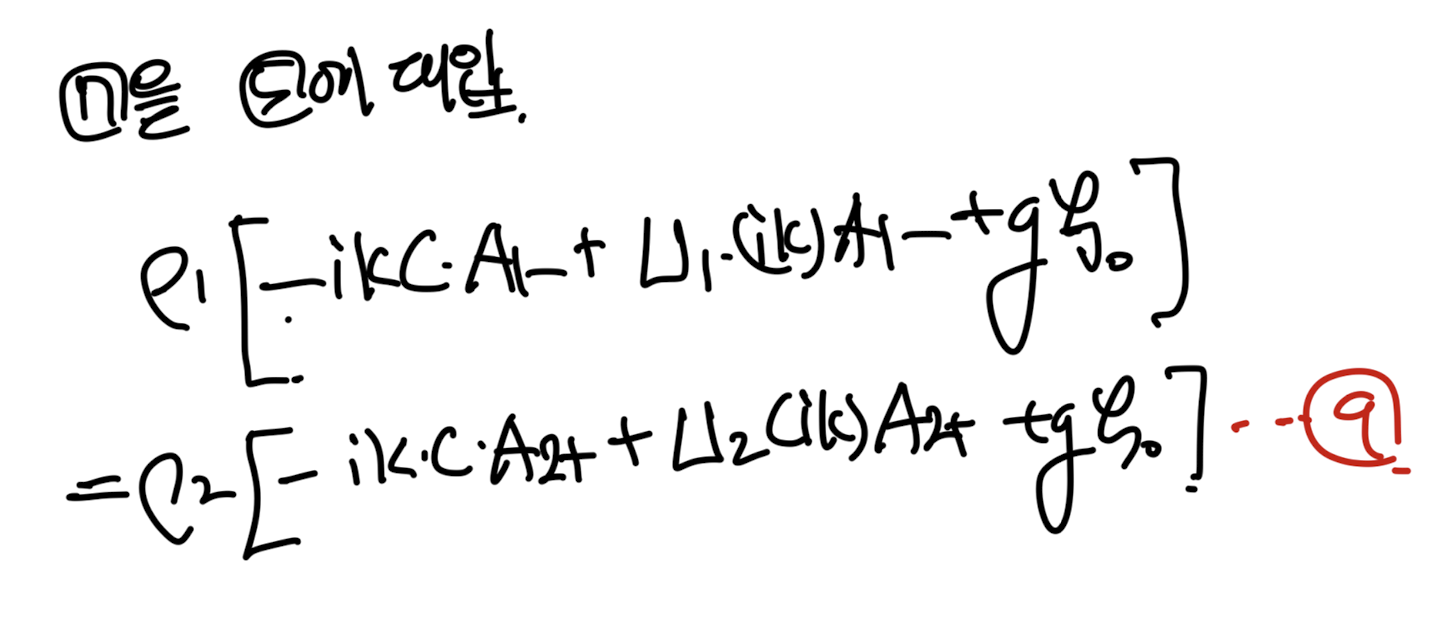 ⓝ을 ⓔ에 대입.
ρ₁[-ikC·A₁₋ + U₁·(ik)A₁₋ + gζ₀]
= ρ₂[-ik·C·A₂₊ + U₂(ik)A₂₊ + gζ₀] ··· ⓠ